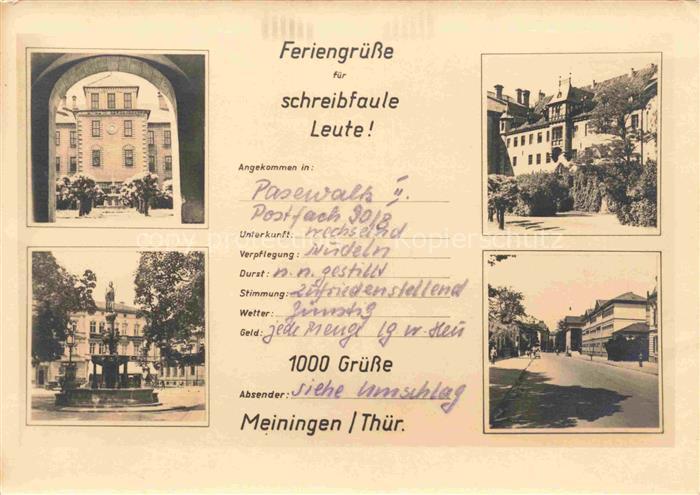 Feriengrüße
für
schreibfaule
Leute!
Angekommen in:
Pasewalk
Postfach 90/8
Unterkunft: wechselnd
Verpflegung: Nudeln
Durst: n. n. gestillt
Stimmung: zufriedenstellend
Wetter: Günstig
Geld: jede Menge
1000 Grüße
Absender: siehe Umschlag
Meiningen/Thür.